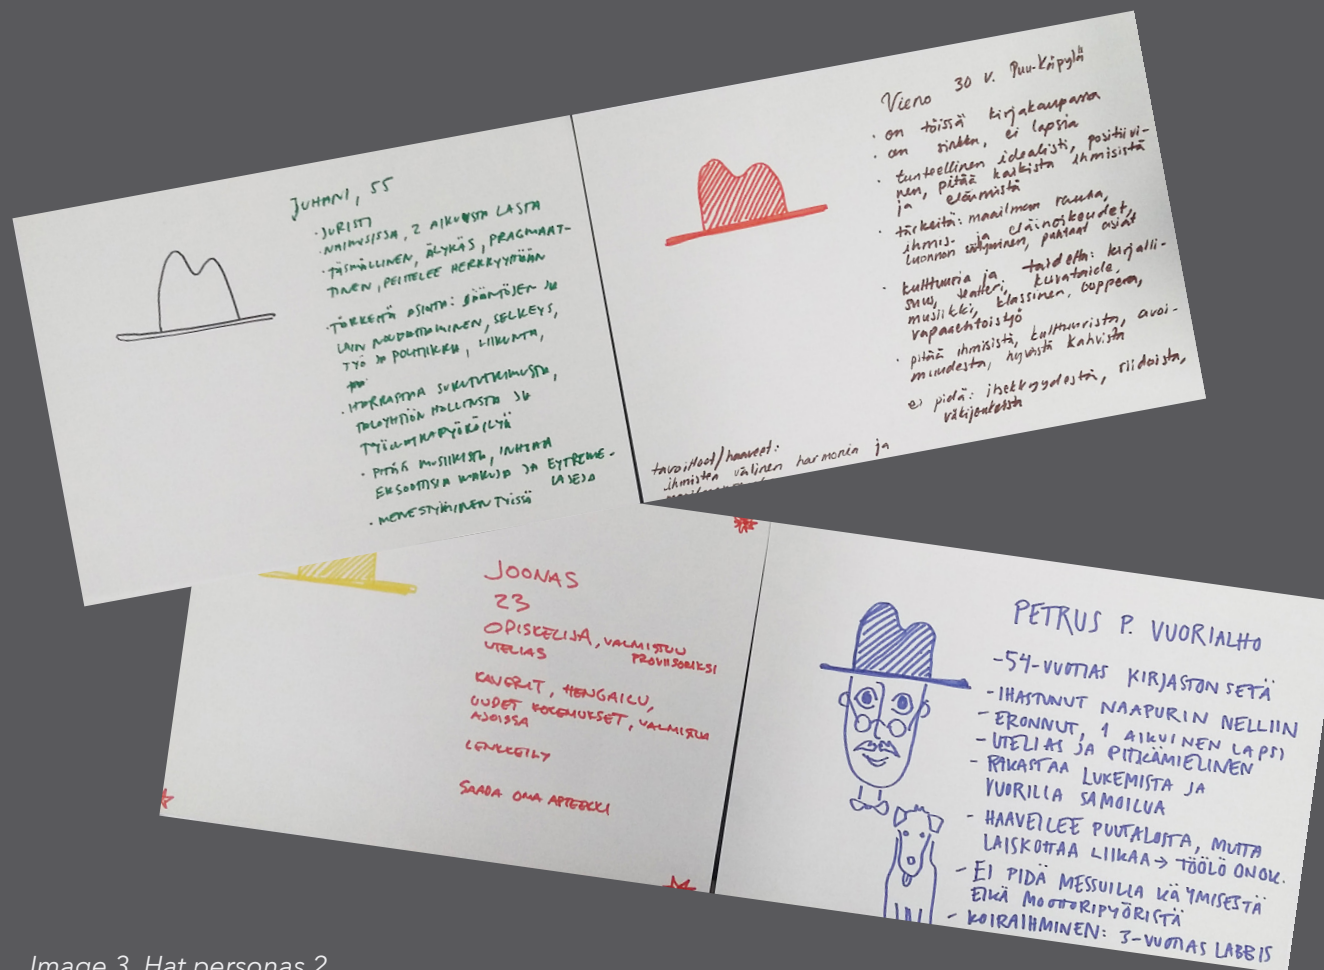 JUHANI, 55
· JURISTI
· NAIMISISSA, 2 AIKUISTA LASTA
· TÄSMÄLLINEN, ÄLYKÄS, PRAGMAAT-
TINEN, PEITTELEE HERKKYYTTÄÄN
· TÄRKEITÄ ASIOITA: SÄÄNTÖJEN JA
LAIN NOUDATTAMINEN, SELKEYS,
TYÖ JA POLITIIKKA, LIIKUNTA,
· HARRASTAA SUKUTUTKIMUSTA,
TALOYHTIÖN HALLINSTA JA
TYÖMATKAPYÖRÄILYÄ
· PITÄÄ MUSIIKISTA, INHOAA
EKSOOTTISIA MAKUJA JA EXTREME-
LAJEJA
· MENESTYMINEN TYÖSSÄ
Vieno 30 v. Puu-Käpylä
· on töissä kirjakaupassa
· on sinkku, ei lapsia
· tunteellinen idealisti, positiivi-
nen, pitää kaikista ihmisistä
ja eläimistä
· tärkeitä: maailman rauha,
ihmis- ja eläinoikeudet,
luonnon säilyminen, puhtaat asiat
· kulttuuria ja taidetta: kirjalli-
suus, teatteri, kuvataide,
musiikki, klassinen, ooppera,
vapaaehtoistyö
· pitää ihmisistä, kulttuurista, avoi-
muudesta, hyvästä kahvista
ei pidä: itsekkyydestä, riidoista,
väkijoukoista
tavoitteet/haaveet:
ihmisten välinen harmonia ja
JOONAS
23
OPISKELIJA, VALMISTUU
PROVIISORIKSI
UTELIAS
KAVERIT, HENGAILU,
UUDET KOKEMUKSET, VALMISTUA
AJOISSA
LENKKEILY
SAADA OMA APTEEKKI
PETRUS P. VUORIALHO
- 54-VUOTIAS KIRJASTON SETÄ
- IHASTUNUT NAAPURIN NELLIIN
- ERONNUT, 1 AIKUINEN LAPSI
- UTELIAS JA PITKÄMIELINEN
- RAKASTAA LUKEMISTA JA
VUORILLA SAMOILUA
- HAAVEILEE PUUTALOSTA, MUTTA
LAISKOTTAA LIIKAA → TÖÖLÖ ON OK.
- EI PIDÄ MESSUILLA KÄYMISESTÄ
EIKÄ MOOTTORIPYÖRISTÄ
- KOIRAIHMINEN: 3-VUOTIAS LABBIS
Image 3. Hat personas 2